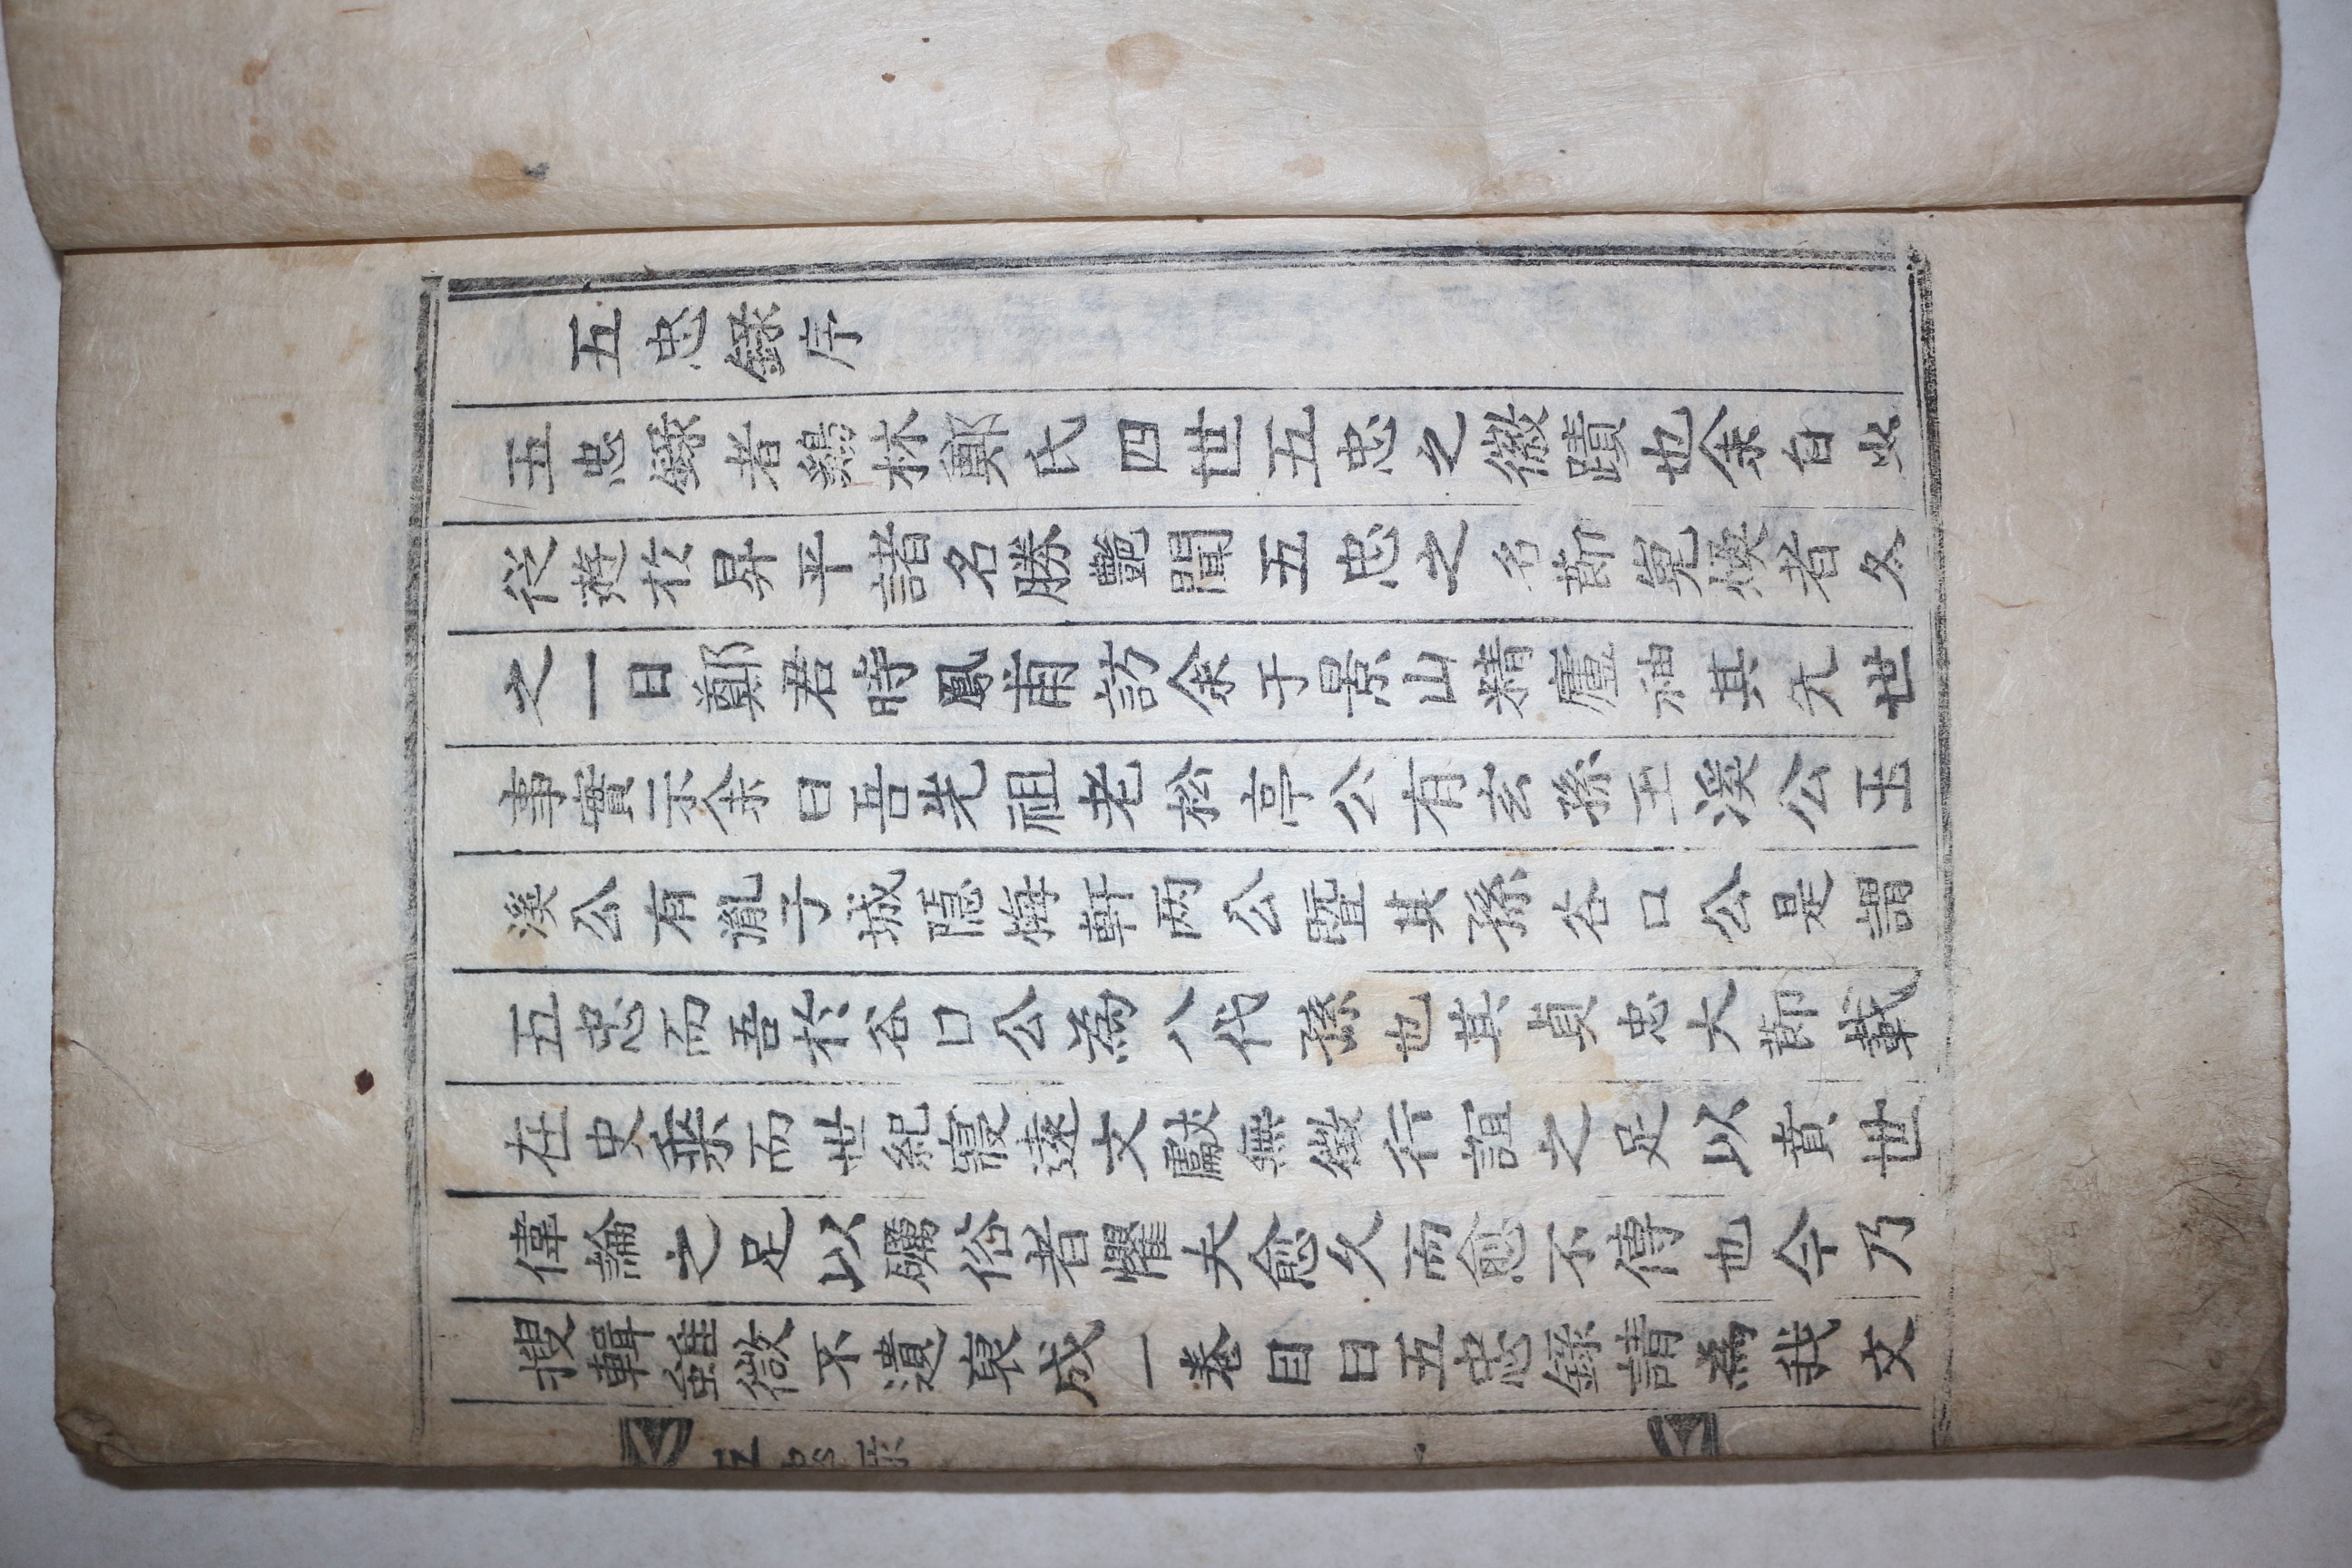 五忠錄序
五忠錄者鷄林鄭氏四世五忠之徽蹟也余自少
從遊於昇平諸名勝艶聞五忠之名節冕煥者久
之一日鄭君時鳳甫訪余于景山精廬袖其先世
事實示余曰吾先祖老松亭公有玄孫玉溪公玉
溪公有胤子城隱梅軒兩公曁其孫谷口公是謂
五忠而吾於谷口公爲八代孫也其貞忠大節載
在史乘而世紀寢遠文獻無徵行誼之足以賁世
偉論之足以礪俗者懼夫愈久而愈不傳也今乃
搜輯雖微不遺裒成一卷目曰五忠錄請爲我文
五忠录